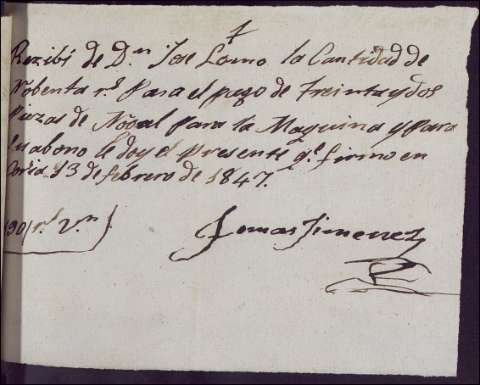 Rezibi de D.n Jose Lomo la Cantidad de
Nobenta r.s Para el pago de treinta y dos
Piezas de Nogal para la Maquina y para
su abono le doy el presente q.e firmo en
Coria 13 de febrero de 1847.
90 r.s V.n
Tomas Jimenez